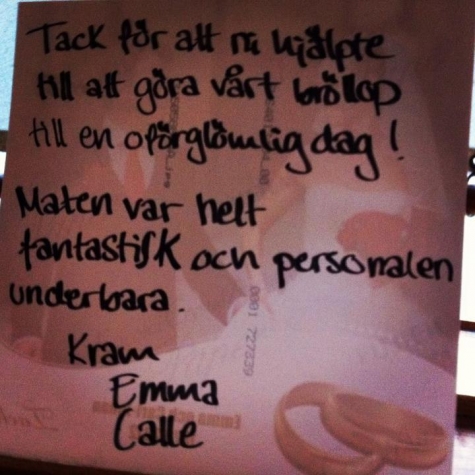 Tack för att ni hjälpte
till att göra vårt bröllop
till en oförglömlig dag!
Maten var helt
fantastisk och personalen
underbara.
Kram
Emma
Calle